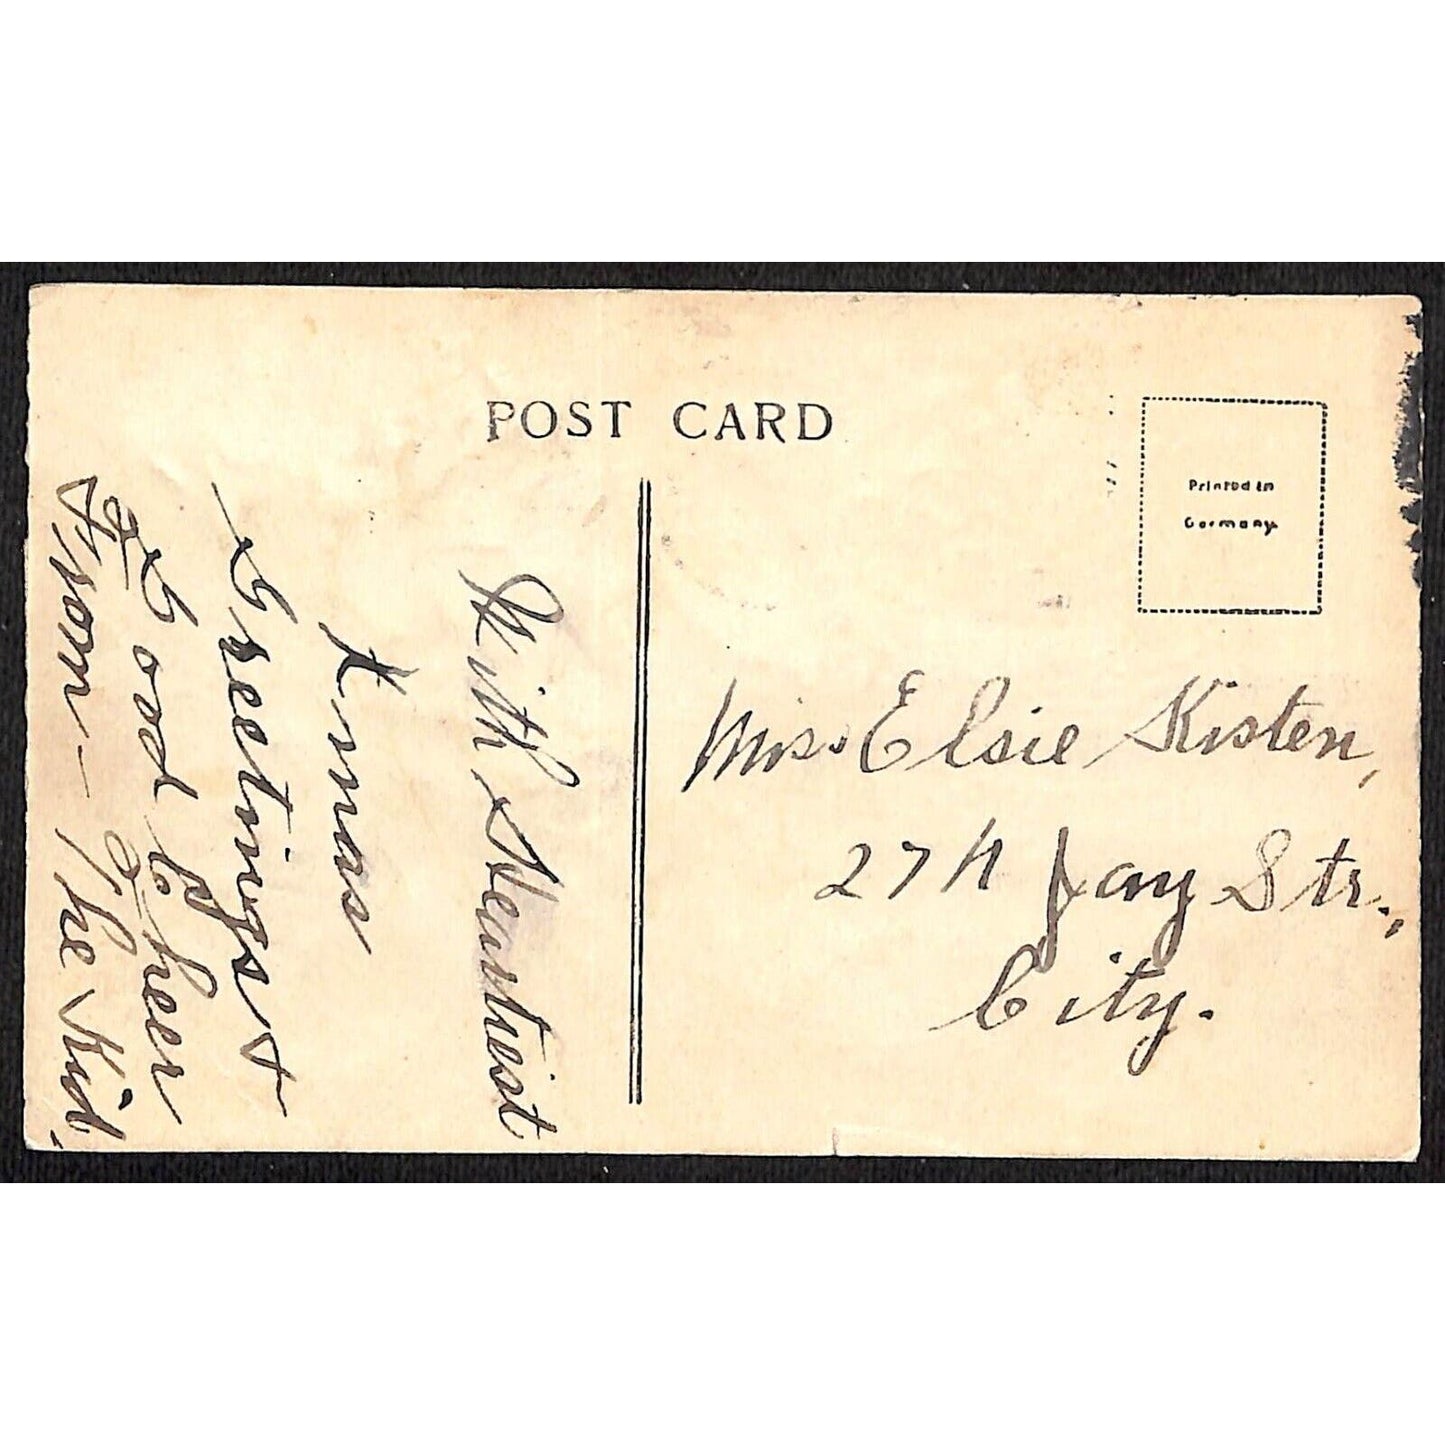 POST CARD
Printed in
Germany.
With Heartiest
Xmas
Greetings &
Good Cheer
From – The Kid.
Miss Elsie Kisten,
Jay Str.,
City.